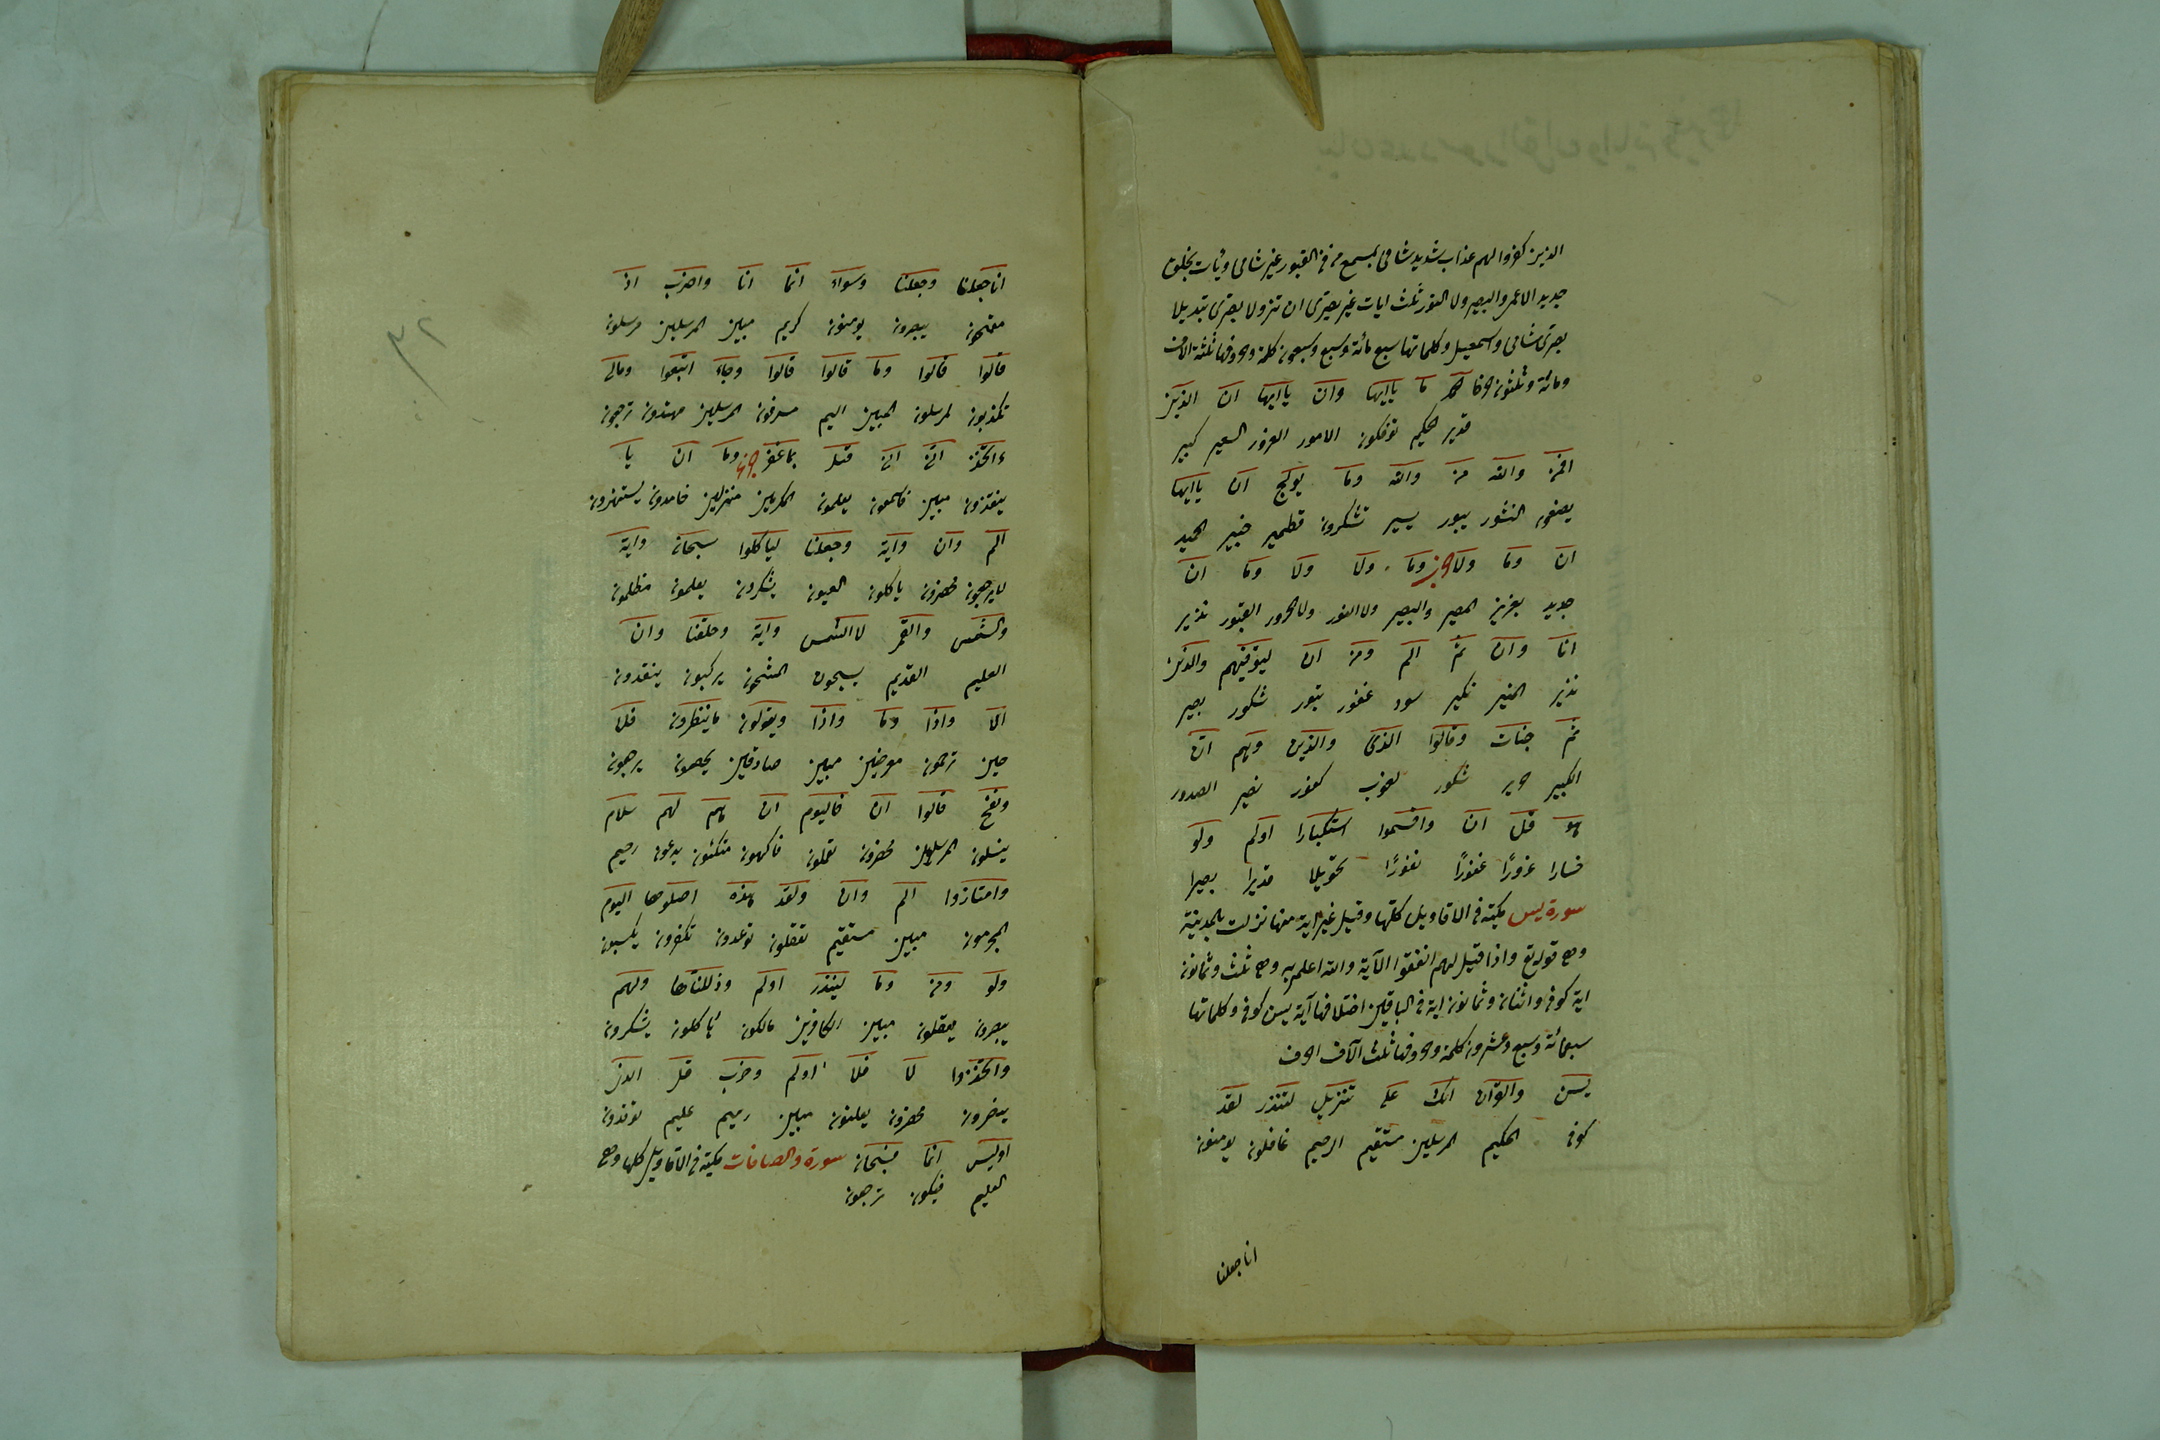 الذين كفروا لهم عذاب شديد شامى بمسمع من فى القبور غير شامى ويأت بخلق
جديد الاعمى والبصير ولا النور ثلث ايات غير بصرى ان تزولا بصرى تبديلا
بصرى شامى واسمعيل وكلماتها سبع مائة وسبع وسبعون كلمة وحروفها ثلثة الاف
ومائة وثلثون حرفا الحمد ما ياايها وان ياايها ان الذين
قدير حكيم توفكون الامور الغرور السعير كبير
افمن والله من والله وما يولج ان ياايها
يصنعون النشور يبور يسير تشكرون قطمير خبير الحميد
ان وما ولا وما ولا ولا وما ان
جديد بعزيز المصير والبصير ولا النور ولا الحرور القبور نذير
انا وان ثم الم ومن ان ليوفيهم والذى
نذير المنير نكير سود غفور تبور شكور بصير
ثم جنات وقالوا الذى والذين وهم ان
الكبير حرير شكور لغوب كفور نصير الصدور
هو قل ان واقسموا استكبارا اولم ولو
خسارا غرورًا غفورًا نفورًا تحويلا قديرا بصيرا
سورة يس مكية فى الاقاويل كلها وقيل غير اية منها نزلت بالمدينة
وهى قوله تع واذا قيل لهم انفقوا الآية والله اعلم به وهى ثلث وثمانون
اية كوفى واثنان وثمانون اية فى الباقين اختلافها آية يس كوفى وكلماتها
سبعمائة وسبع وعشرون كلمة وحروفها ثلث الآف حرف
يس والقرآن انك على تنزيل لتنذر لقد
كوفى الحكيم المرسلين مستقيم الرحيم غافلون يومنون
انا جعلنا
انا جعلنا وجعلنا وسواء انما انا واضرب اذ
مقمحون يبصرون يومنون كريم مبين المرسلين مرسلون
قالوا قالوا وما قالوا قالوا وجاء اتبعوا ومالى
تكذبون لمرسلون المبين اليم مسرفون المرسلين مهتدون ترجعون
ءاتخذ انى انى قيل بما غفر وما ان يا
ينقذون مبين فاسمعون يعلمون المكرمين منزلين خامدون يستهزون
الم وان واية وجعلنا لياكلوا سبحان واية
لا يرجعون محضرون ياكلون العيون يشكرون يعلمون مظلمون
والشمس والقمر لا الشمس واية وخلقنا وان
العليم القديم يسبحون المشحون يركبون ينقذون
الا واذا وما واذا ويقولون ما ينظرون فلا
حين ترحمون معرضين مبين صادقين يخصمون يرجعون
ونفخ قالوا ان فاليوم ان هم لهم سلام
ينسلون المرسلون محضرون تعملون فاكهون متكئون يدعون رحيم
وامتازوا الم وان ولقد هذه اصلوها اليوم
المجرمون مبين مستقيم تعقلون توعدون تكفرون يكسبون
ولو ومن وما لينذر اولم وذللناها ولهم
يبصرون يعقلون مبين الكافرين مالكون ياكلون يشكرون
واتخذوا لا فلا اولم وضرب قل الذى
ينصرون محضرون يعلنون مبين رميم عليم توقدون
اوليس انما فسبحان سورة والصافات مكية فى الاقاويل كلها وهى
العليم فيكون ترجعون